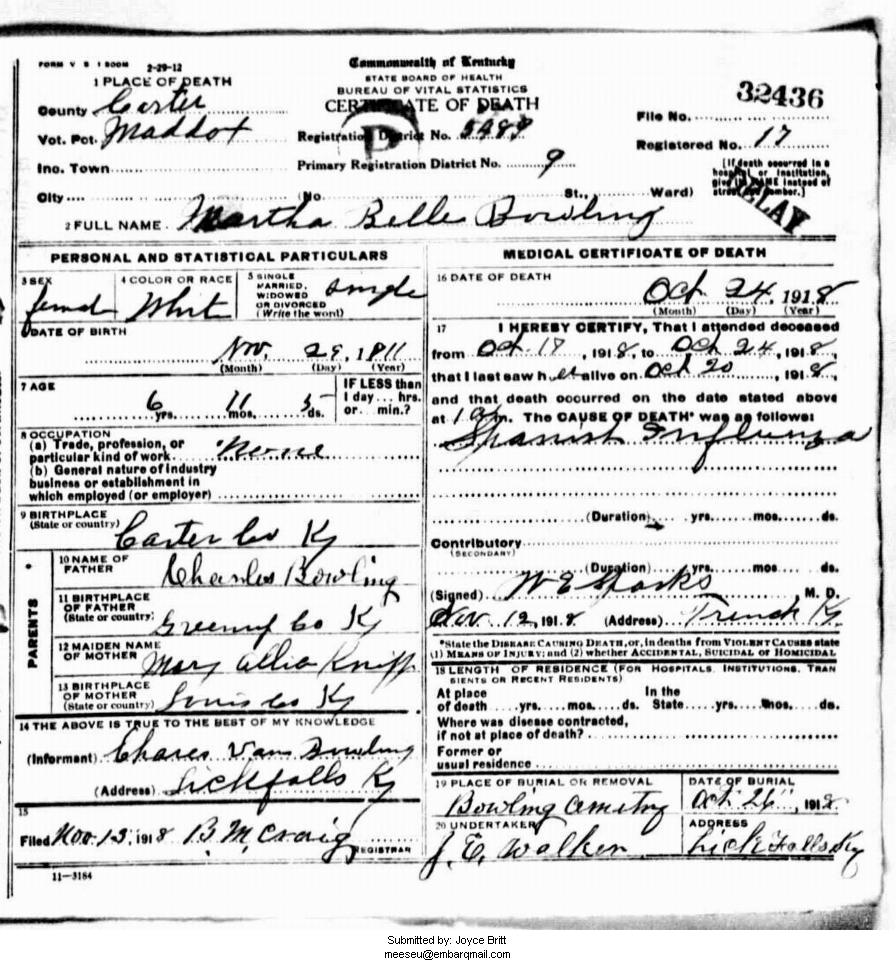 FORM V S 1 500M 2-29-12
Commonwealth of Kentucky
STATE BOARD OF HEALTH
BUREAU OF VITAL STATISTICS
CERTIFICATE OF DEATH
1 PLACE OF DEATH
County Carter
Vot. Pct. Maddox
Inc. Town
City (No. St., Ward)
Registration District No.
Primary Registration District No. 9
32436
File No.
Registered No. 17
[If death occurred in a
hospital or institution,
give its NAME instead of
street and number.]
DELAY
2 FULL NAME Martha Belle Bowling
PERSONAL AND STATISTICAL PARTICULARS
3 SEX
4 COLOR OR RACE Whit
5 SINGLE
MARRIED,
WIDOWED
OR DIVORCED
(Write the word)
single
6 DATE OF BIRTH
Nov. 29, 1911
(Month) (Day) (Year)
7 AGE
6 yrs. 11 mos. 5 ds.
IF LESS than
1 day... hrs.
or... min.?
8 OCCUPATION
(a) Trade, profession, or
particular kind of work None
(b) General nature of industry
business or establishment in
which employed (or employer)
9 BIRTHPLACE
(State or country) Carter Co Ky
PARENTS
10 NAME OF
FATHER Charles Bowling
11 BIRTHPLACE
OF FATHER
(State or country) Co Ky
12 MAIDEN NAME
OF MOTHER Mary Allia
13 BIRTHPLACE
OF MOTHER
(State or country) Co Ky
14 THE ABOVE IS TRUE TO THE BEST OF MY KNOWLEDGE
(Informant) Chares Van Bowling
(Address) Lickfalls Ky
15
Filed Nov-13, 1918 B. M. Craig
REGISTRAR
11-3184
MEDICAL CERTIFICATE OF DEATH
16 DATE OF DEATH
Oct. 24, 1918
(Month) (Day) (Year)
17 I HEREBY CERTIFY, That I attended deceased
from Oct. 17, 1918, to Oct 24, 1918,
that I last saw her alive on Oct 20, 1918,
and that death occurred on the date stated above
at 1 m. The CAUSE OF DEATH* was as follows:
Spanish Influenza
(Duration) yrs. mos. ds.
Contributory
(SECONDARY)
(Duration) yrs. mos. ds.
(Signed) W E Sparks M. D.
Nov 12, 1918 (Address) Ky
*State the DISEASE CAUSING DEATH, or, in deaths from VIOLENT CAUSES state
(1) MEANS OF INJURY; and (2) whether ACCIDENTAL, SUICIDAL or HOMICIDAL
18 LENGTH OF RESIDENCE (FOR HOSPITALS, INSTITUTIONS, TRAN
SIENTS OR RECENT RESIDENTS)
At place In the
of death yrs. mos. ds. State yrs. mos. ds.
Where was disease contracted,
if not at place of death?
Former or
usual residence
19 PLACE OF BURIAL OR REMOVAL
Bowling Cemetry
DATE OF BURIAL
Oct 26, 1918
20 UNDERTAKER
J. E. Walker
ADDRESS
Lick Falls Ky
Submitted by: Joyce Britt
meeseu@embarqmail.com